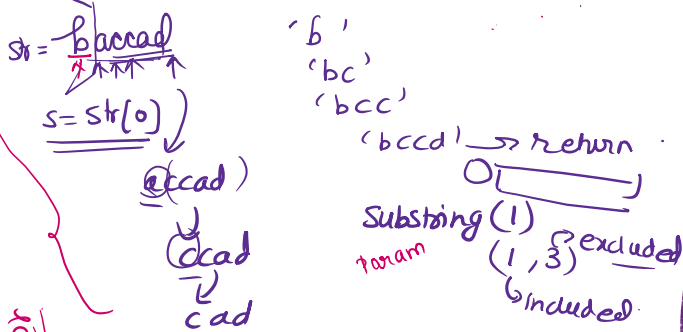 str = b|accad
s = str(0)
accad)
ccad
cad
'b'
'bc'
'bcc'
'bccd' → return
Substring (1)
param
(1, 3) excluded
included